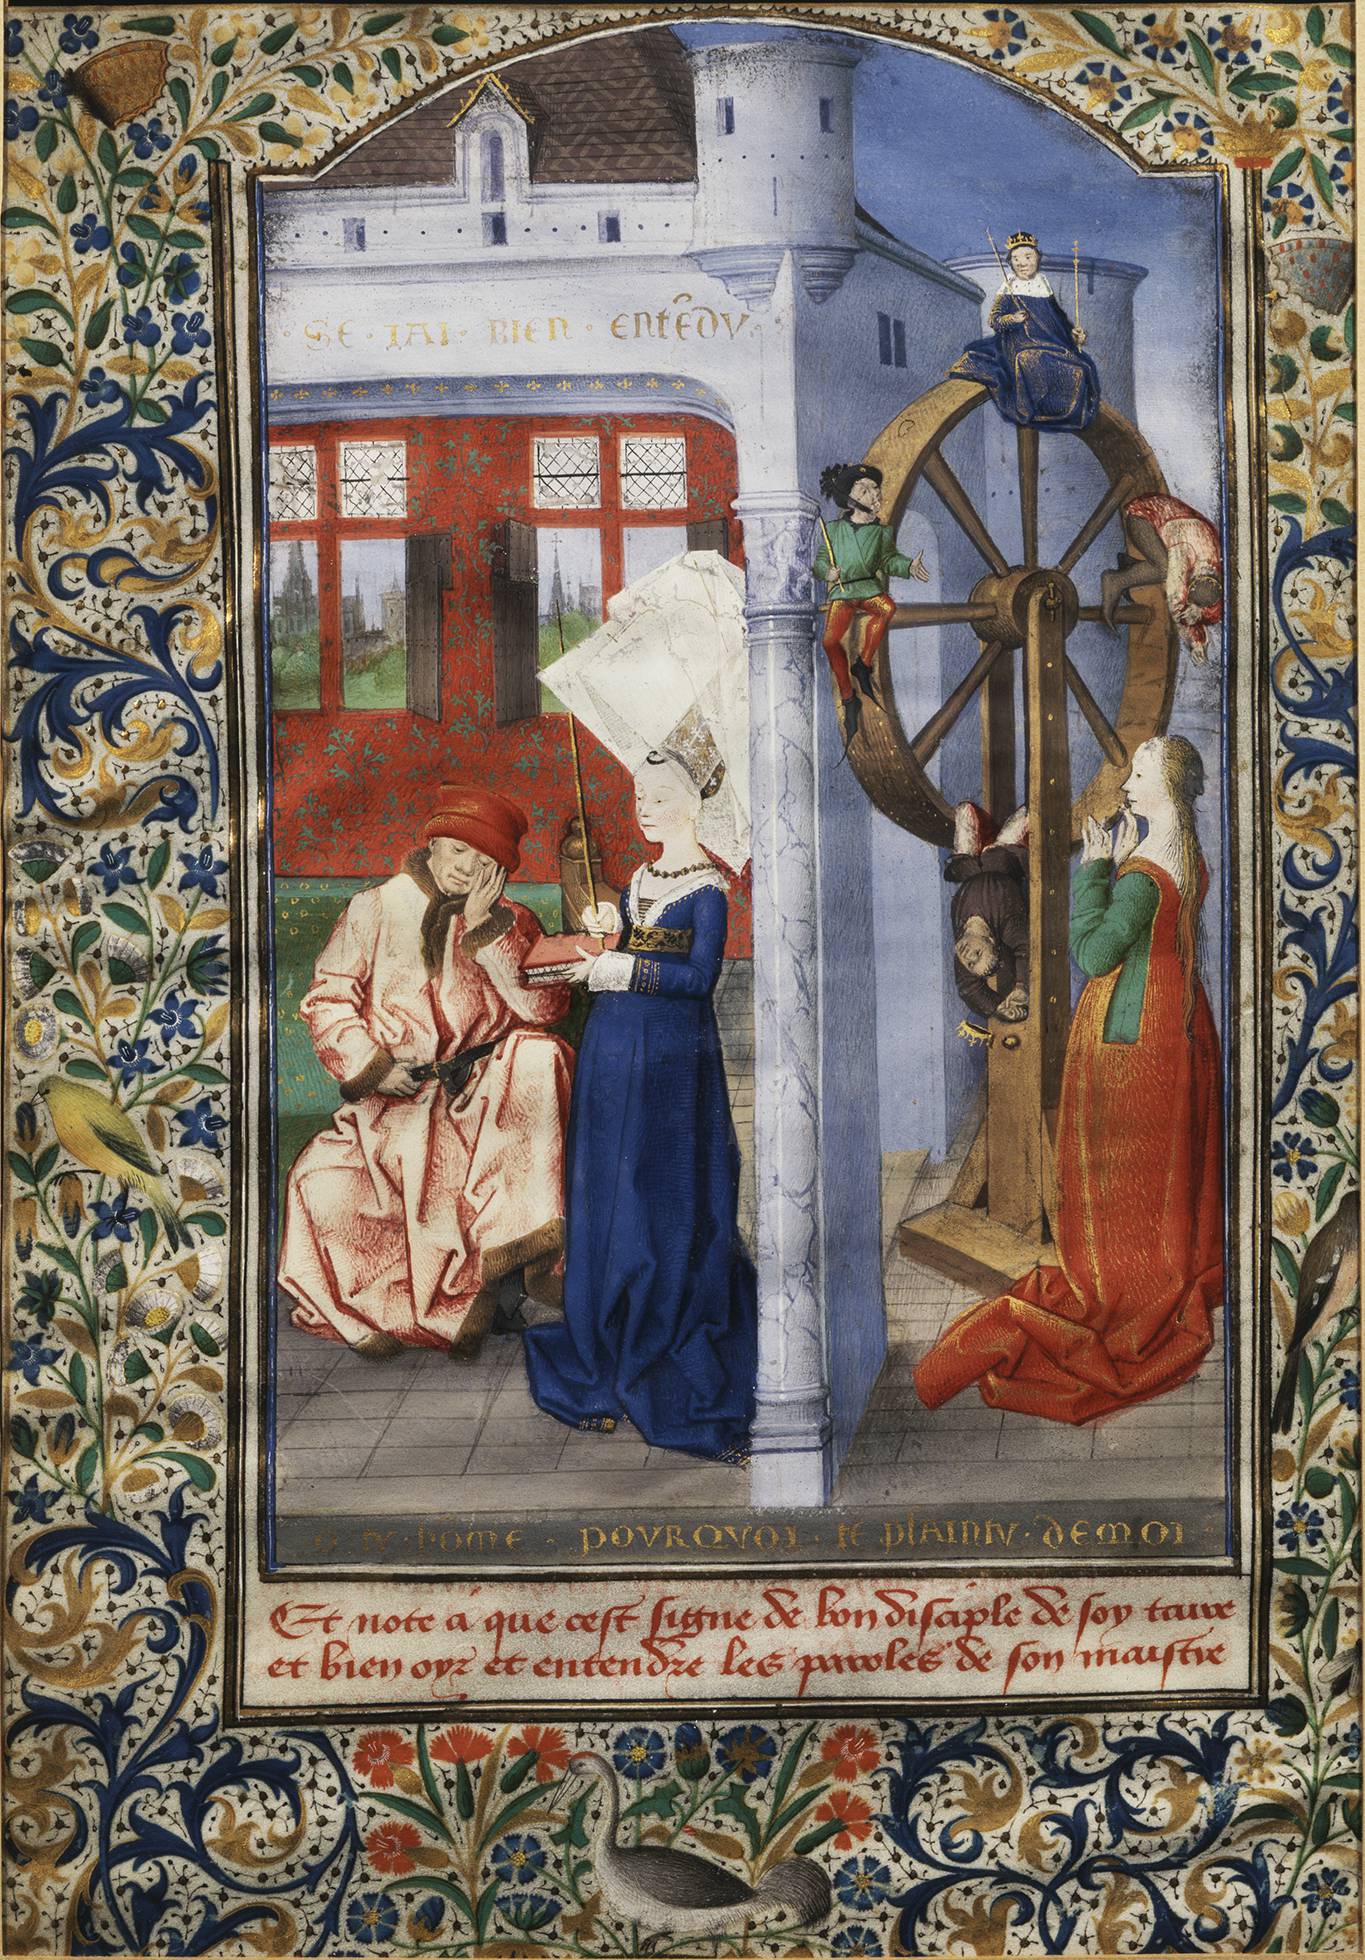 SE · IAI · BIEN · ENTĒDV ·
O TV · hōME · POVRQVOI · TE PlAINTV · DEMOI ·
Et note a que cest signe de bon disciple de soy taire
et bien oyr et entendre les paroles de son maistre